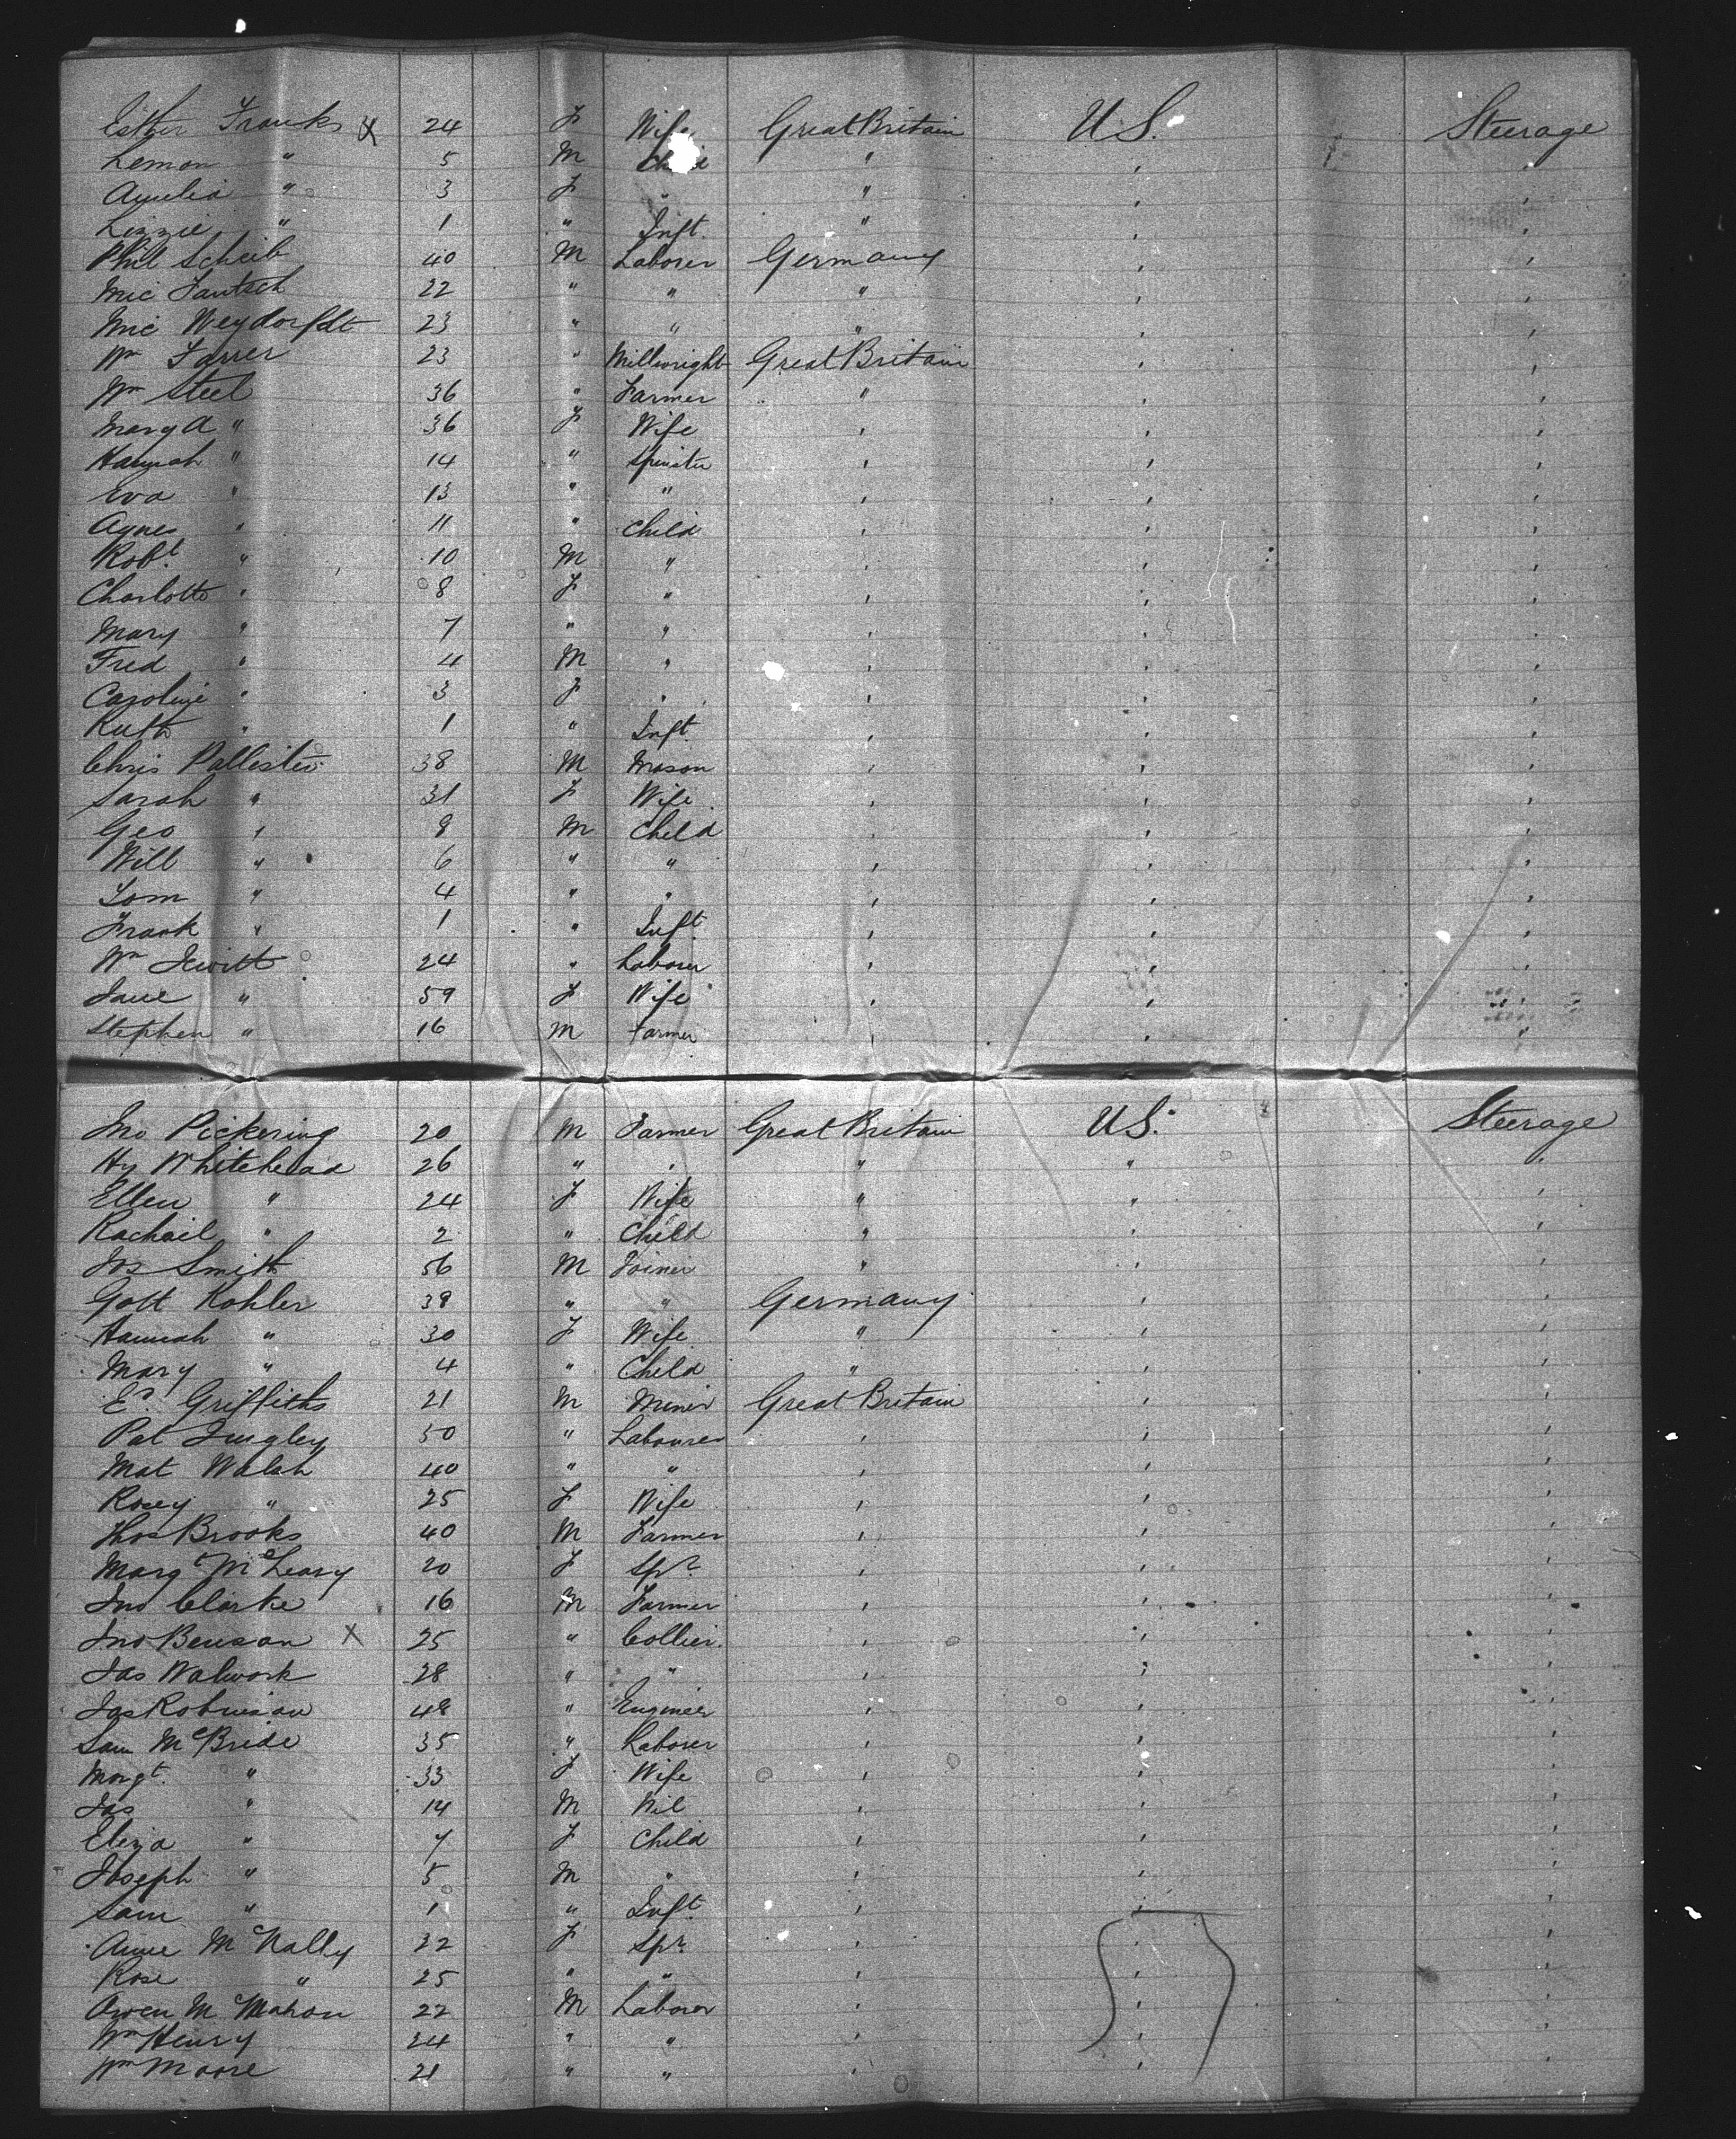 Esther Franks x 24 F Wife Great Britain U S. Steerage
Lemon " 5 M " " "
Amelia " 3 F " " " "
Lizzie " 1 " Inft. " " "
Phil Scheib 40 M Laborer Germany " "
Mic 22 " " " " "
Mic Weydorfdt 23 " " " " "
Wm Farrer 23 " Millwright Great Britain " "
Wm Steel 36 " Farmer " " "
Mary A " 36 F Wife " " "
Hannah " 14 " Spinster " " "
Eva " 13 " " " " "
Agnes " 11 " Child " " "
Robt. " 10 M " " " "
Charlotte " 8 F " " " "
Mary " 7 " " " " "
Fred " 4 M " " " "
Caroline " 3 F " " " "
Ruth " 1 " Inft. " " "
Chris Pallister 38 M Mason " " "
Sarah " 31 F Wife " " "
Geo " 8 M Child " " "
Will " 6 " " " " "
Tom " 4 " " " " "
Frank " 1 " Inft " " "
Wm Jewitt 24 " Laborer " " "
Jane " 59 F Wife " " "
Stephen " 16 M Farmer " " "
Jno Pickering 20 M Farmer Great Britain U S. Steerage
Hy Whitehead 26 " " " " "
Ellen " 24 F Wife " " "
Rachail " 2 " Child " " "
Jos Smith 56 M Joiner " " "
Gott Kohler 38 " " Germany " "
Hannah " 30 F Wife " " "
Mary " 4 " Child " " "
Ed. Griffiths 21 M Miner Great Britain " "
Pat 50 " Labourer " " "
Mat Walsh 40 " " " " "
Rosey " 25 F Wife " " "
Thos Brooks 40 M Farmer " " "
Margt McLeary 20 F Spr. " " "
Jno Clarke 16 M Farmer " " "
Jno Benson x 25 " Collier. " " "
Jas Walwork 28 " " " " "
Jas Robinson 48 " Engineer " " "
Sam McBride 35 " Laborer " " "
Margt. " 33 F Wife " " "
Jas " 14 M Nil " " "
Eliza " 7 F Child " " "
Joseph " 5 M " " " "
Sam " 1 " Inft. " " "
Anne McNally 22 F Spr. " " "
Rose " 25 " " " " "
Owen McMahon 22 M Laborer " " "
Wm Henry 24 " " " " "
Wm Moore 21 " " " " "